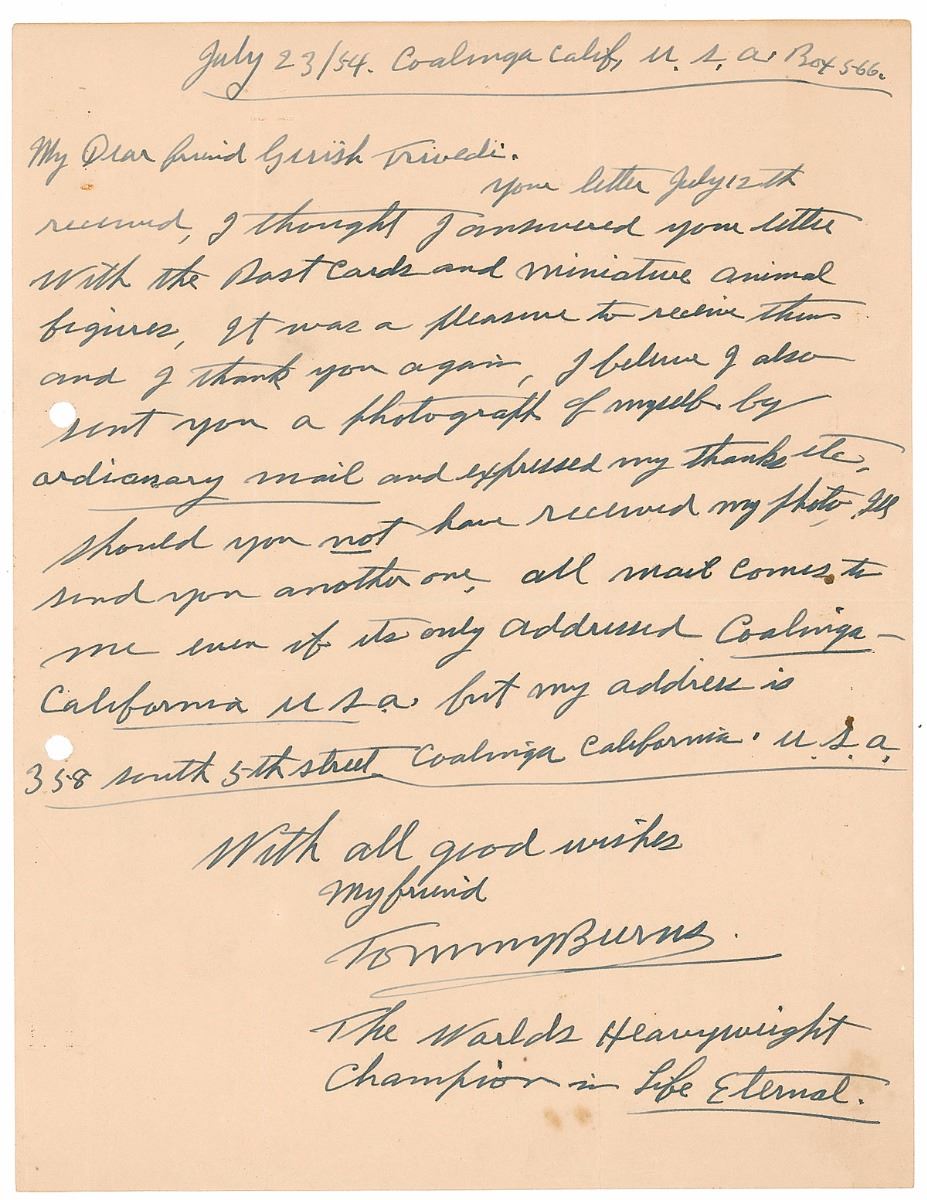 July 23/54. Coalinga Calif, U. S. A. Box 566.
My Dear friend Girish Trivedi.
Your letter July 12th
received, I thought I answered your letter
With the Post Cards and miniature animal
figures, It was a pleasure to receive them
and I thank you again, I believe I also
sent you a photograph of myself by
ordianary mail and expressed my thanks etc,
should you not have received my photo, Ill
send you another one, all mail comes to
me even if its only addressed Coalinga -
California U S A. but my address is
358 south 5th street Coalinga California. U. S. A.
With all good wishes
My friend
Tommy Burns.
The Worlds Heavyweight
Champion in Life Eternal.